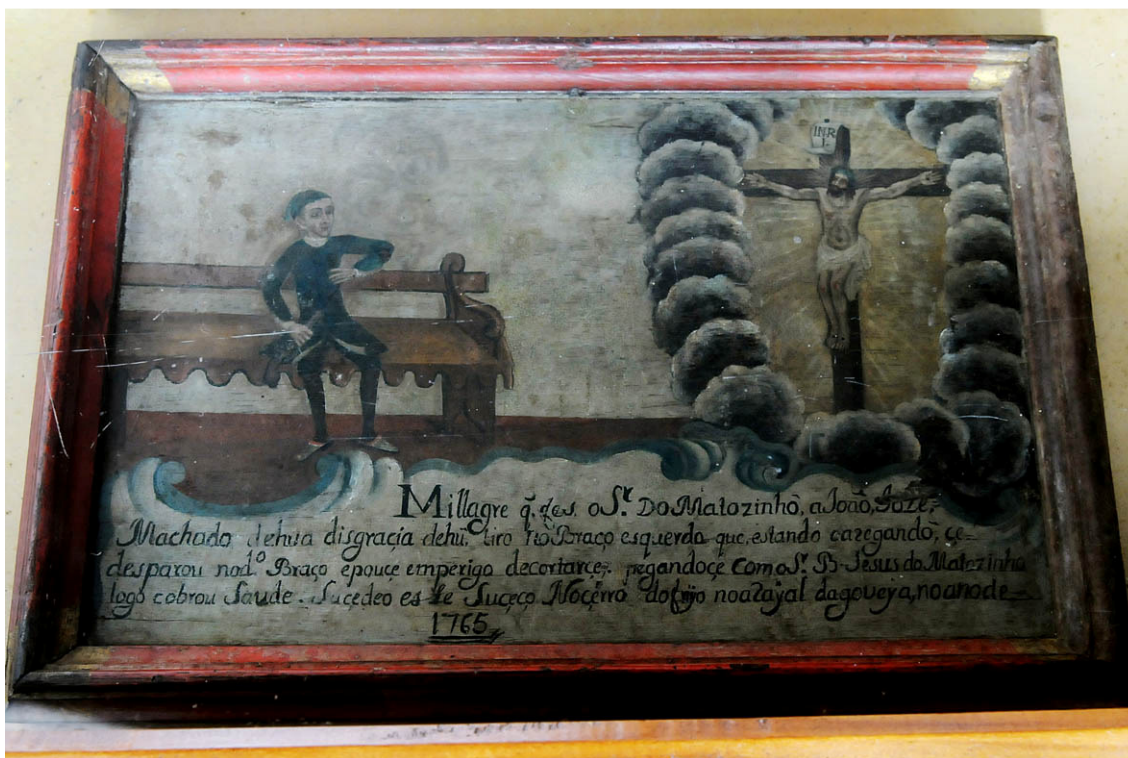 INR
I
Millagre q̃. fes. o Sr. Do Matozinhõ, a João, Joze,
Machado dehua disgracia dehu. tiro no Braço esquerdo que, estando cazegando, çe-
desparou nod.o Braço epouçe emperigo decortarçe,. pegandoçe Com o Sr. B. Jesus do Matozinho
logo cobrou Saude. Sucedeo este Suçeço. Noçerro do frijo noarajal dagoveja, noanode
1765